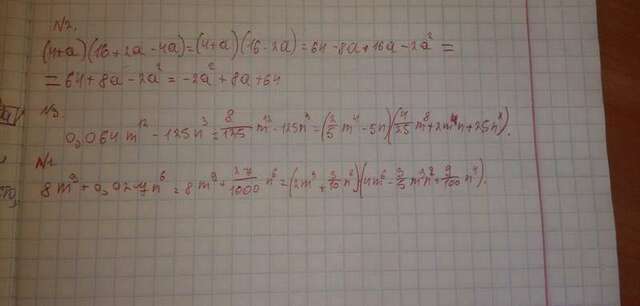 N2.
(4+a)(16+2a-4a)=(4+a)(16-2a)=64-8a+16a-2a²=
=64+8a-2a²=-2a²+8a+64
N3
0,064m¹²-125n³=8/125 m¹²-125n³=(2/5 m⁴-5n)(4/25 m⁸+2m⁴n+25n²).
N1.
8m⁹+0,027n⁶=8m⁹+27/1000 n⁶=(2m³+3/10 n²)(4m⁶-3/5 m³n²+9/100 n⁴).